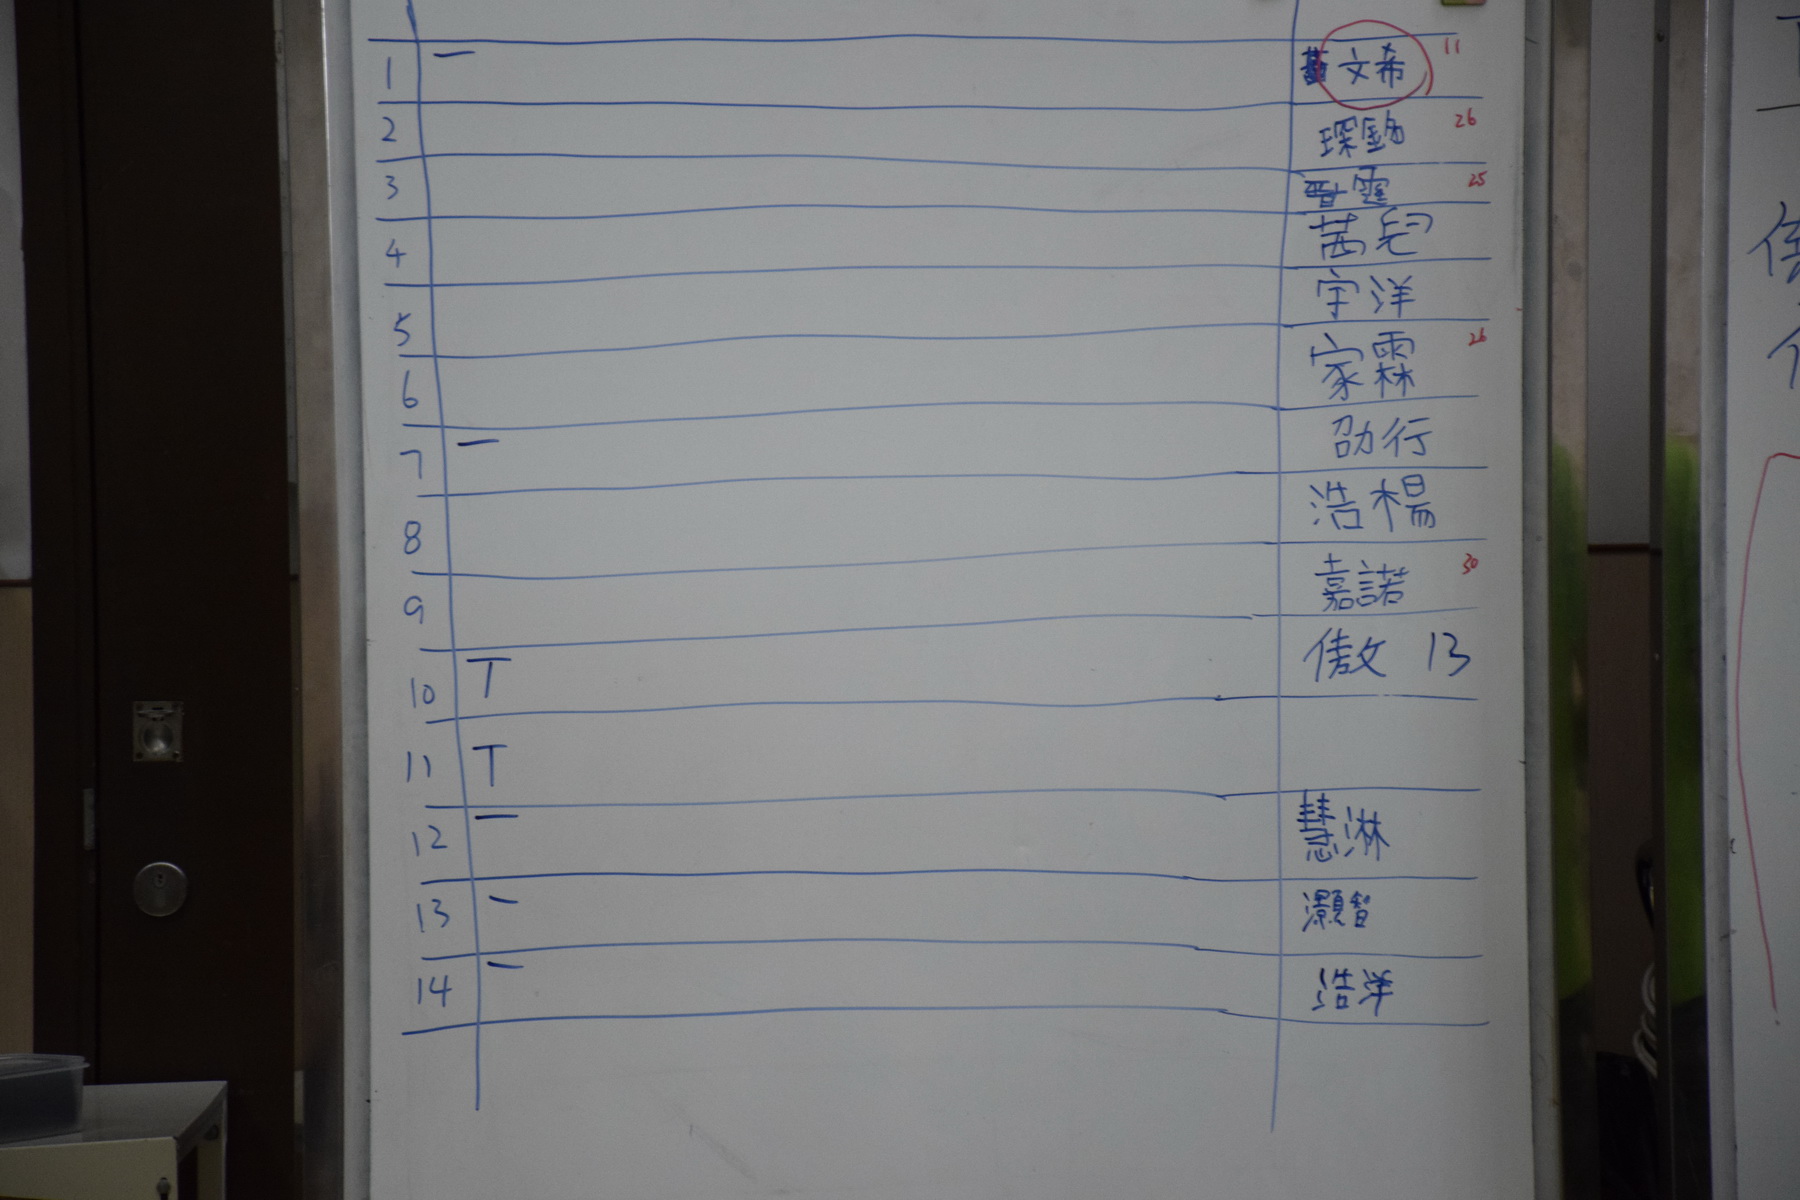 1 一 文希 11
2 琛銘 26
3 霆 25
4 茜兒
5 宇洋
6 家霖 26
7 一 劭行
8 浩楊
9 嘉諾 30
10 T 傲文 13
11 T
12 一 慧淋
13 一 灝智
14 一 浩洋